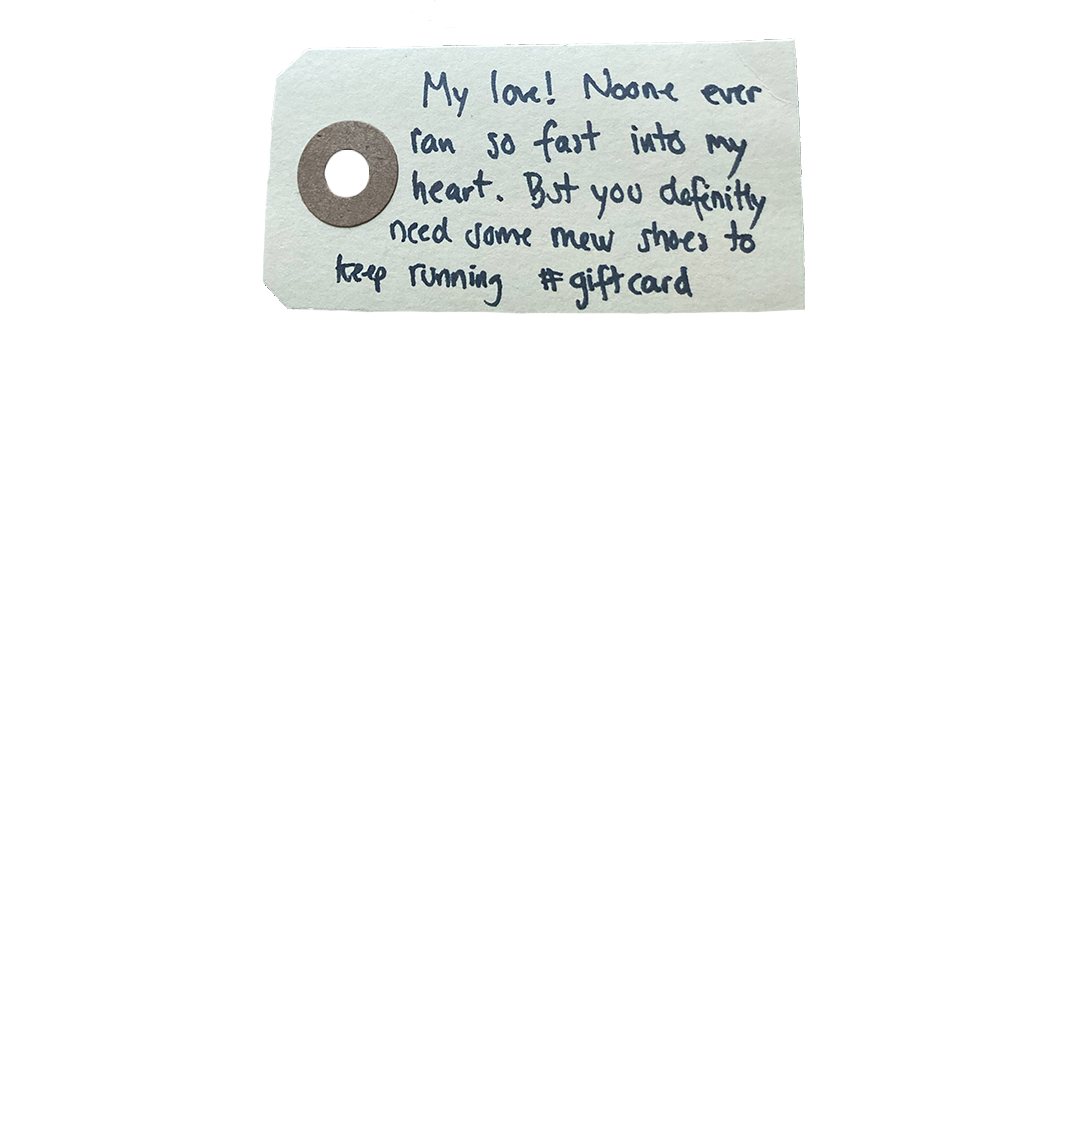 My love! Noone ever
ran so fast into my
heart. But you definitly
need some mew shoes to
keep running #giftcard